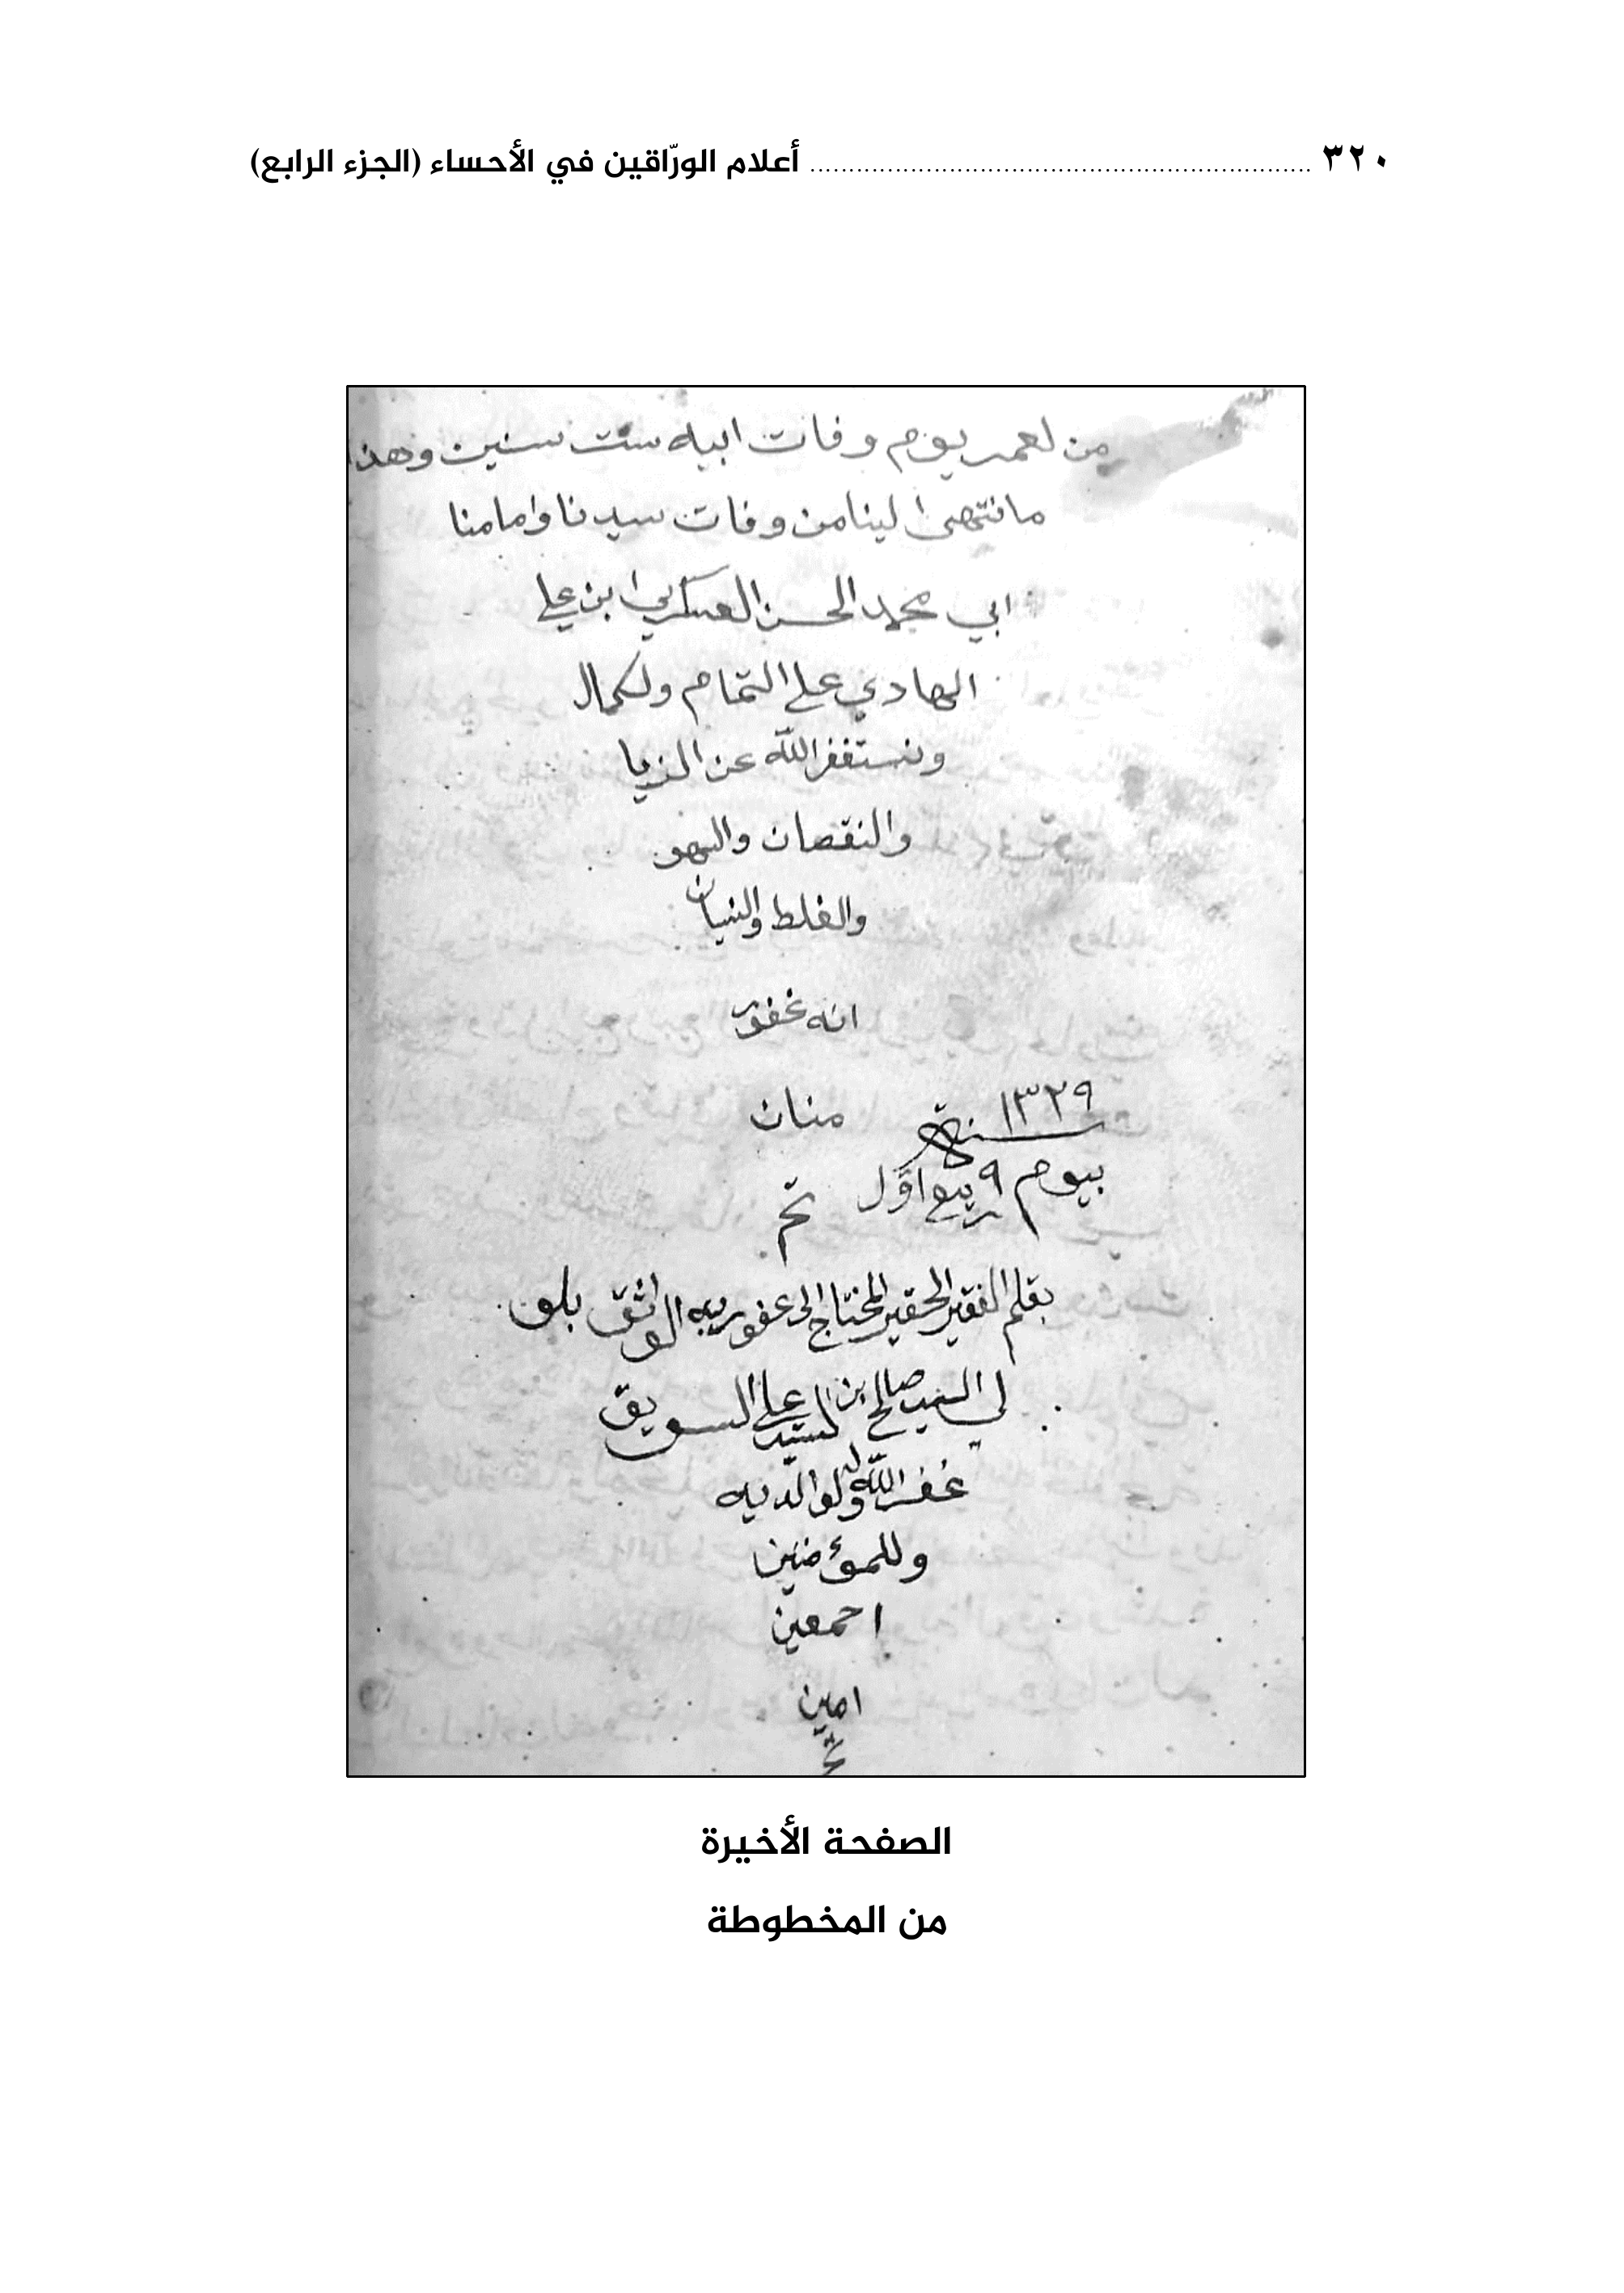 ٣٢٠ ................................................................ أعلام الورّاقين في الأحساء (الجزء الرابع)
من لعمر يوم وفات ابيه ست سنين وهذا
ما نتهى الينا من وفات سيدنا وامامنا
ابي محمد الحسن العسكري ابن علي
الهادي على التمام ولكمال
ونستغفر الله عن الزيا
والنقصان والسهو
والغلط والنسيان
انه غفور
منان
سنة ١٣٢٩
بيوم ٩ ربيع اوّل
تم
بقلم الفقير الحقير المحتاج الى عفو ربه الواثق بلو
لي السيد صالح بن السيد علي السويق
غفر الله له ولوالديه
وللمؤمنين
اجمعين
امين
تم
الصفحة الأخيرة
من المخطوطة